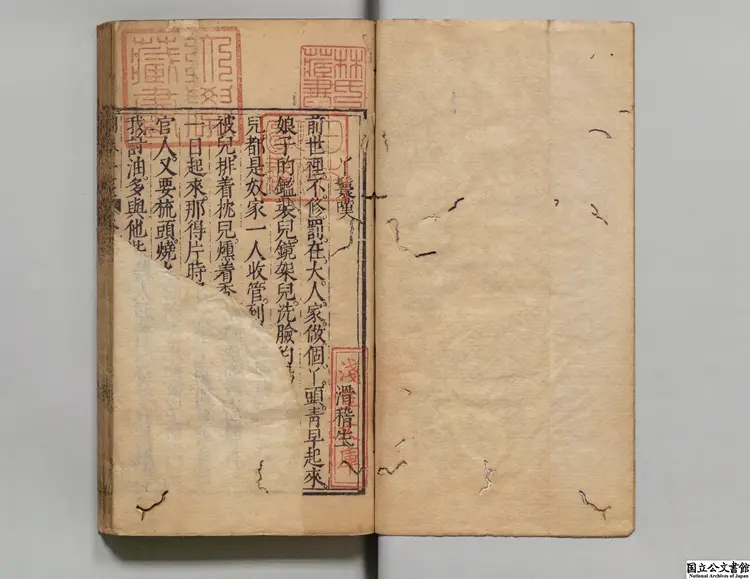 林氏藏書
丫鬟嘆
滑稽生
淺草文庫
前世裡不修。罰在大人家。做個丫頭。青早起來。
娘子的鑑裝兒。鏡架兒。洗臉的
兒都是奴家一人收管。到
被兒。排着枕兒。燻着
一日起來。那得片時
官人。又要梳頭。燒
我討油。多與他
国立公文書館
National Archives of Japan